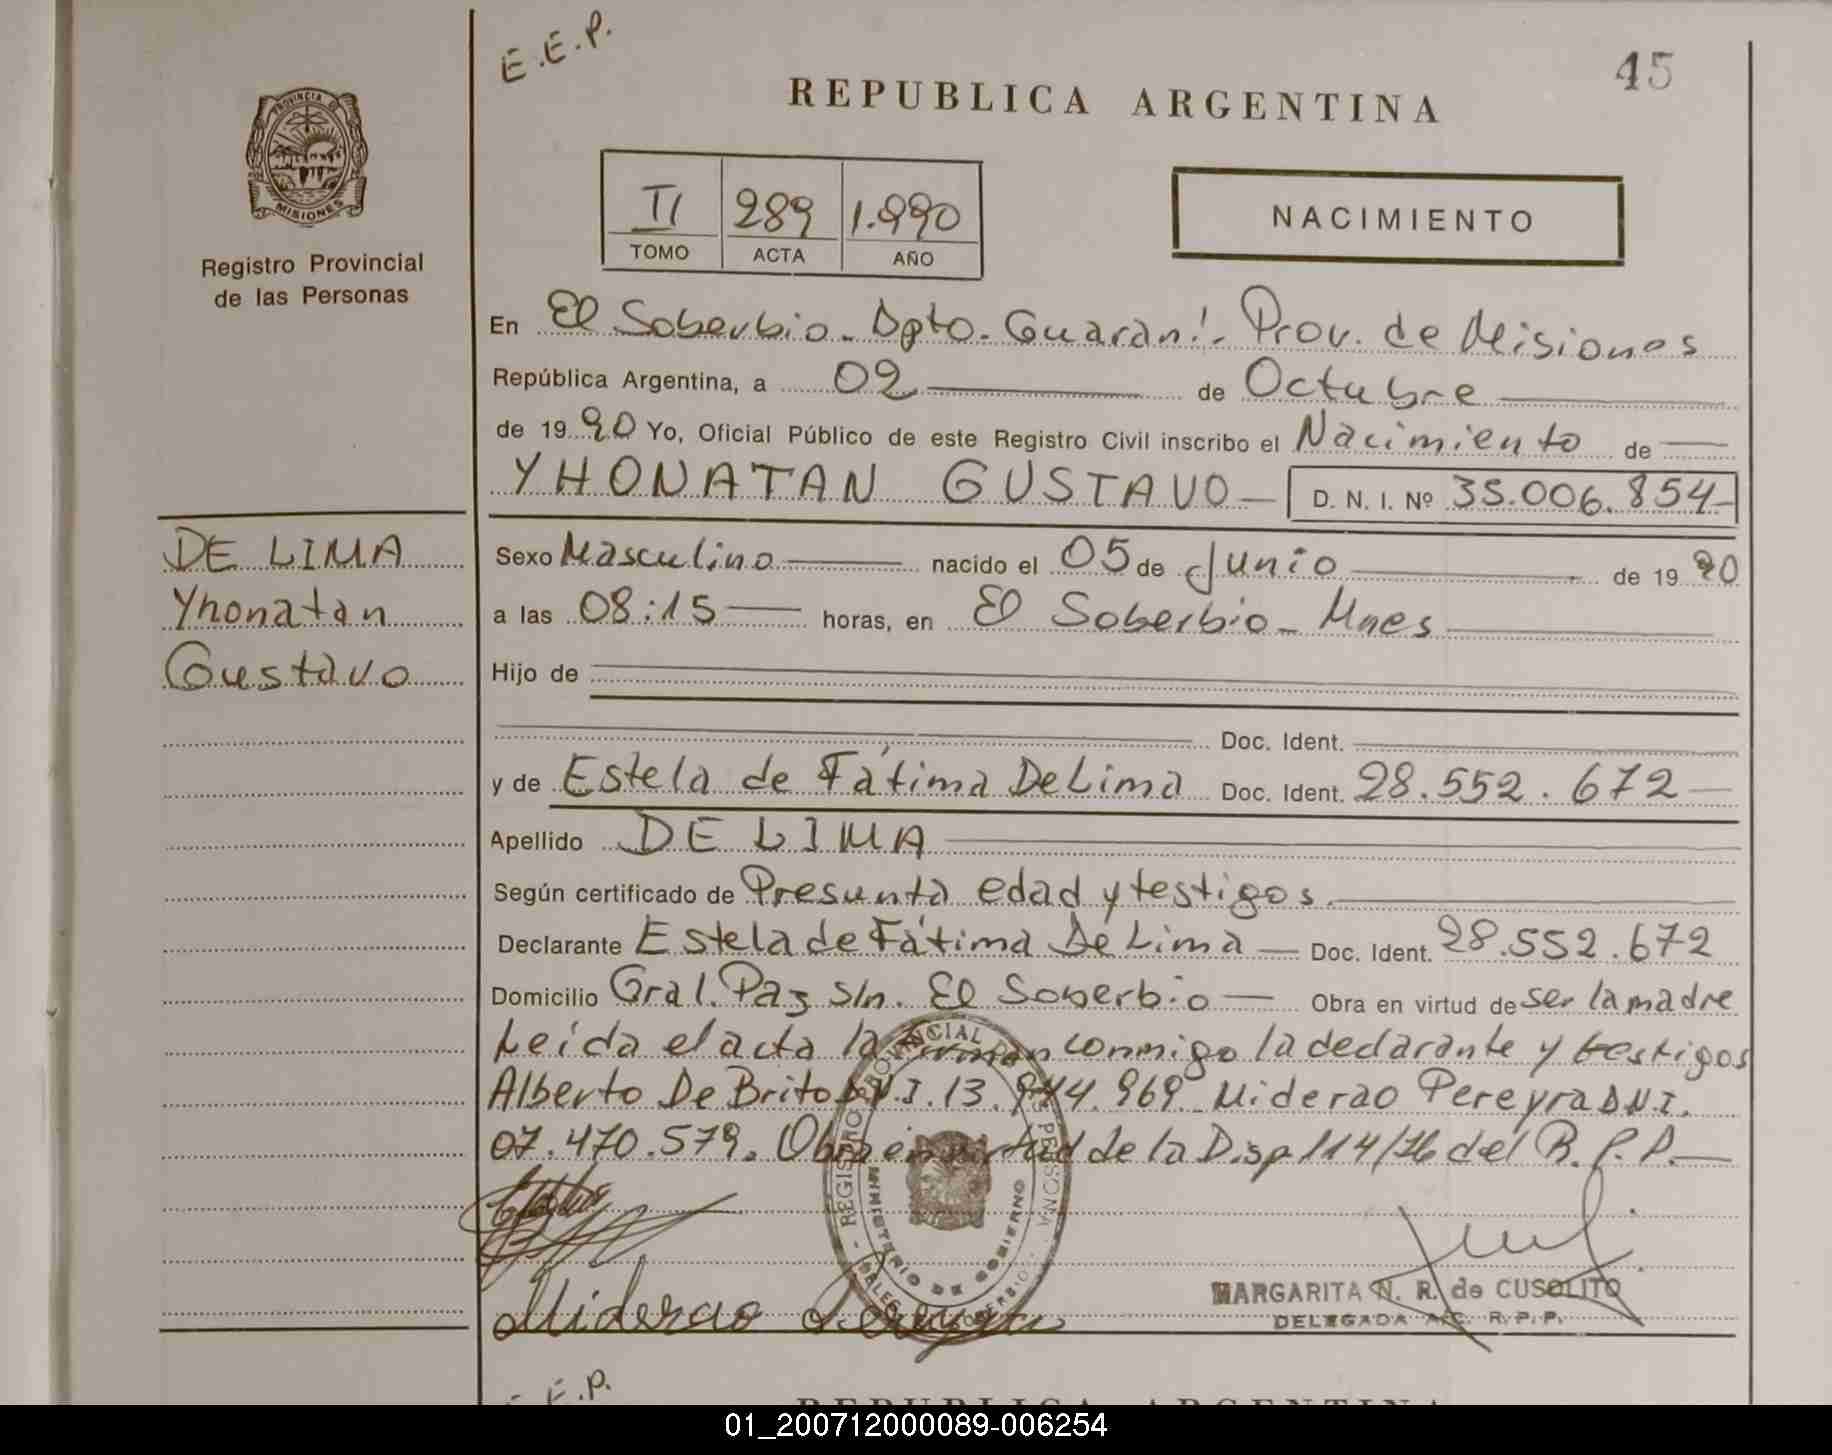 E.E.P.
45
REPUBLICA ARGENTINA
PROVINCIA DE
MISIONES
Registro Provincial
de las Personas
II 289 1.990
TOMO ACTA AÑO
NACIMIENTO
En El Soberbio - Dpto. Guaraní - Prov. de Misiones
República Argentina, a 02 de Octubre
de 1990 Yo, Oficial Público de este Registro Civil inscribo el Nacimiento de
YHONATAN GUSTAVO D. N. I. Nº 35.006.854
DE LIMA
Yhonatan
Gustavo
Sexo Masculino nacido el 05 de Junio de 1990
a las 08:15 horas, en El Soberbio - Mnes
Hijo de
Doc. Ident.
y de Estela de Fátima De Lima Doc. Ident. 28.552.672
Apellido DE LIMA
Según certificado de Presunta edad y testigos
Declarante Estela de Fátima De Lima Doc. Ident. 28.552.672
Domicilio Gral. Paz s/n. El Soberbio Obra en virtud de ser la madre
Leída el acta la firman conmigo la declarante y testigos
Alberto De Brito D.N.I. 13.944.969 Miderao Pereyra D.N.I.
07.470.579. Obra en virtud de la Disp 114/76 del R.P.P.
REGISTRO PROVINCIAL DE LAS PERSONAS
MINISTERIO DE GOBIERNO
Miderao Pereyra
MARGARITA N. R. de CUSOLITO
DELEGADA A/C. R.P.P.
E.E.P.
REPUBLICA ARGENTINA
01_200712000089-006254